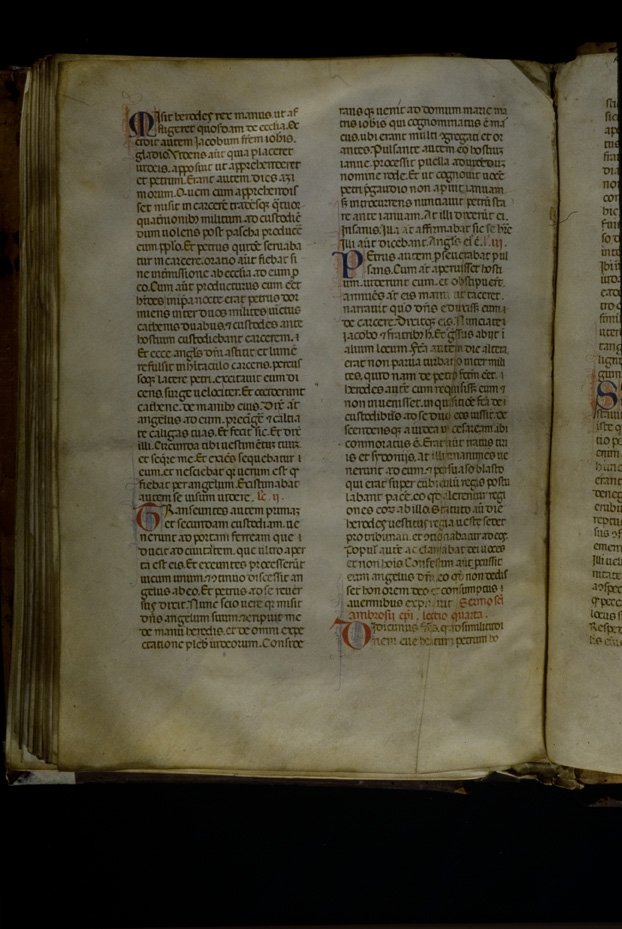 Misit herodes rex manus ut af
fligeret quosdam de ecclia. Oc
cidit autem iacobum frem iohis.
gladio. Videns aut quia placeret
iudeis. apposuit ut apprehenderet
et petrum. Erant autem dies azi
morum. Quem cum apprehendis
set misit in carcere tradesq; qtuor
quaternionib; militum ad custodie
dum uolens post pascha producere
eum pplo. Et petrus quide seruaba
tur in carcere. oratio aut fiebat si
ne intmissione ab ecclia ad eum p
eo. Cum aut producturus eum eet
hodes in ipa nocte erat petrus dor
miens inter duos milites uictus
cathenis duabus. et custodes ante
hostium custodiebant carcerem.
Et ecce angls dni astitit et lume
refulsit in hitaculo carceris. percus
soq; latere petri. excitauit eum di
cens. surge uelociter. Et ceciderunt
cathene. de manib; eius. Dix at
angelus ad eum. precigere et calcia
te caligas tuas. Et fecit sic. Et dix
illi. Circumda tibi uestimetum tuum
et seqre me. Et exies sequebatur
eum. et nesciebat qr uerum est qd
fiebat per angelum. Existimabat
autem se uisum uidere. lc. ii.
Transeuntes autem primam
et secundam custodiam. ue
nerunt ad portam ferream que
ducit ad ciuitatem. que ultro aper
ta est eis. Et exeuntes processerut
uicum unum. et continuo discessit an
gelus ab eo. Et petrus ad se reuer
sus dixit. Nunc scio uere qr misit
dns angelum suum et eripuit me
de manu herodis. et de omni expe
ctatione pleb iudeorum. Conside
rans q; uenit ad domum marie ma
tris iohis qui cognominatus e mar
cus. ubi erant multi cgregati et or
antes. Pulsante autem eo hostium
ianue. processit puella ad uidendum
nomine rode. Et ut cognouit uoce
petri pgaudio non apuit ianuam
s; introcurrens nunciauit petru sta
re ante ianuam. At illi dixerut ei.
Insanis. Illa at affirmabat sic se hre
Illi aut dicebant. Angls ei e. l. iii.
Petrus autem pseuerabat pul
sans. Cum at aperuisset hosti
um. uiderunt eum. et obstupuert.
annues at eis manu. ut taceret.
narrauit quo dns eduxiss; eum
de carcere. Dixitq; eis. Nunciate
iacobo et fratrib; h. Et egssus abijt i
alium locum. Fca autem die altera
erat non parua turbatio inter mili
tes. quid nam de petro fcm eet.
herodes aute cum requisiss; eum et
non inuenisset. inquisitioe fca de
custodibus. ad se duci eos iussit. de
scendensq; a iudea in cesaream ibi
commoratus e. Erat aut iratus tiri
is et sydonijs. at illi unanimes ue
nerunt ad eum. et persuaso blasto
qui erat super cubiculu regis postu
labant pace. eo qd alerentur regi
ones eor ab illo. Statuto aut die
herodes uestitus regia ueste sedet
pro tribunali. et contionabatur ad eos.
Populus aute acclamabat dei uoces
et non hois. Confestim aut pcussit
eum angelus dni. eo qd non dedis
set honorem deo et consumptus
a uermibus expirauit. Sermo sci
ambrosii epi. lectio quarta.